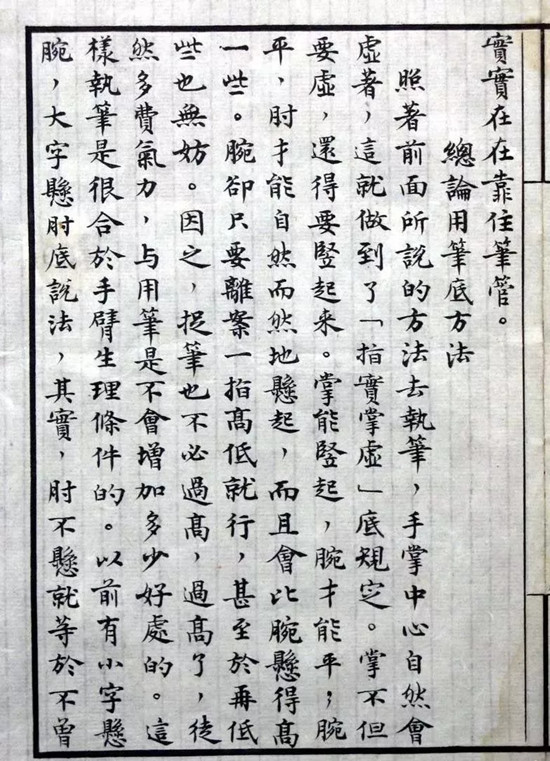 實實在在靠住筆管。
總論用筆底方法
照著前面所說的方法去執筆，手掌中心自然會
虛著，這就做到了「指實掌虛」底規定。掌不但
要虛，還得要竪起来。掌能竪起，腕才能平；腕
平，肘才能自然而然地懸起，而且會比腕懸得高
一些。腕卻只要離案一指高低就行，甚至於再低
些也無妨。因之，捉筆也不必過高，過高了，徒
然多費氣力，与用筆是不會增加多少好處的。這
樣執筆是很合於手臂生理條件的。以前有小字懸
腕，大字懸肘底說法，其實，肘不懸就等於不曾